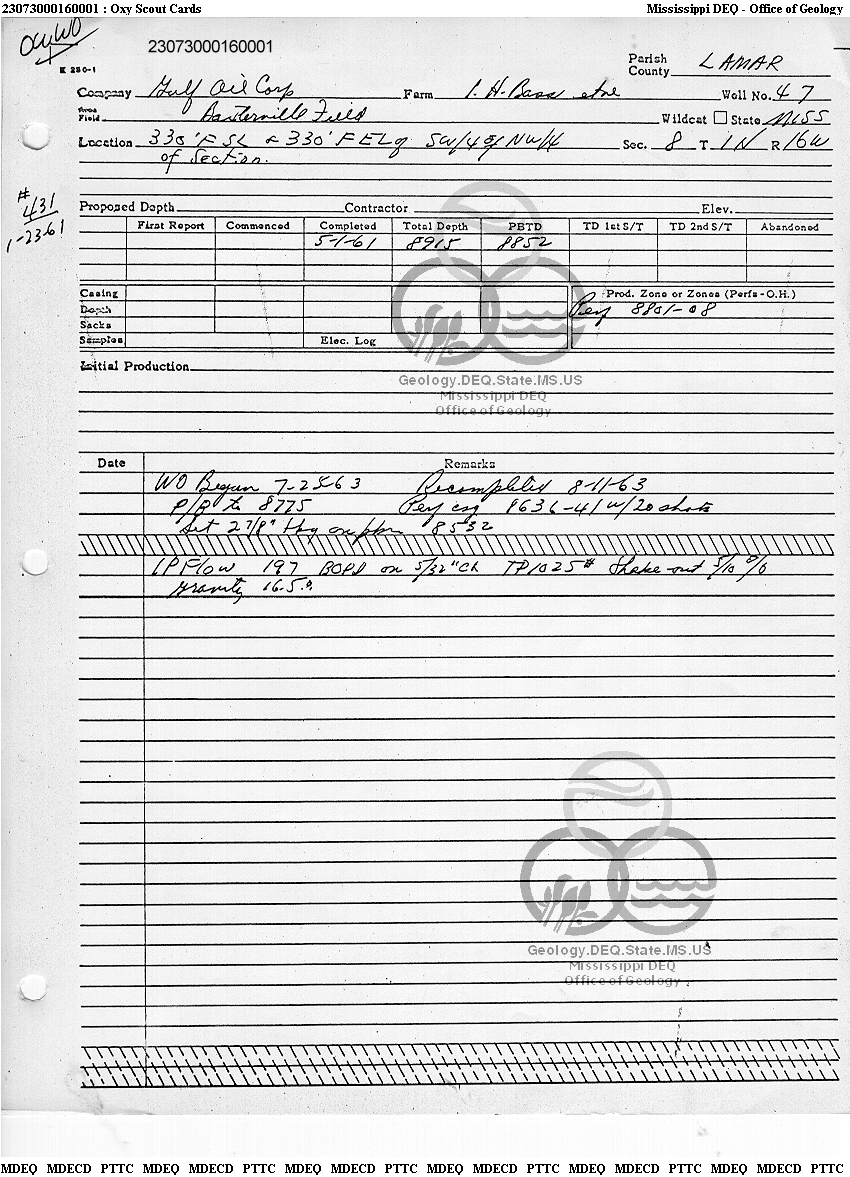 23073000160001 : Oxy Scout Cards Mississippi DEQ - Office of Geology
OWWO
23073000160001
E 250-1
Parish
County LAMAR
Company Gulf Oil Corp Farm I. H. Bass etal Well No. 47
Area
Field Baxterville Field Wildcat State MISS
Location 330' FSL & 330' FEL of SW/4 of NW/4 Sec. 8 T 1N R 16W
of Section.
#
431
1-23-61
Proposed Depth Contractor Elev.
First Report Commenced Completed Total Depth PBTD TD 1st S/T TD 2nd S/T Abandoned
5-1-61 8915 8852
Casing Prod. Zone or Zones (Perfs-O.H.)
Depth Perf 8801-08
Sacks
Samples Elec. Log
Initial Production
Geology.DEQ.State.MS.US
Mississippi DEQ
Office of Geology
Date Remarks
WO Began 7-25-63 Recompleted 8-11-63
P/B to 8775 Perf csg 8636-41 w/20 shots
Set 2 7/8" tbg on pkr 8532
IP Flow 197 BOPD on 5/32" Ch TP 1025# Shake-out 5/10 %
gravity 16.5°
Geology.DEQ.State.MS.US
Mississippi DEQ
Office of Geology
MDEQ MDECD PTTC MDEQ MDECD PTTC MDEQ MDECD PTTC MDEQ MDECD PTTC MDEQ MDECD PTTC MDEQ MDECD PTTC